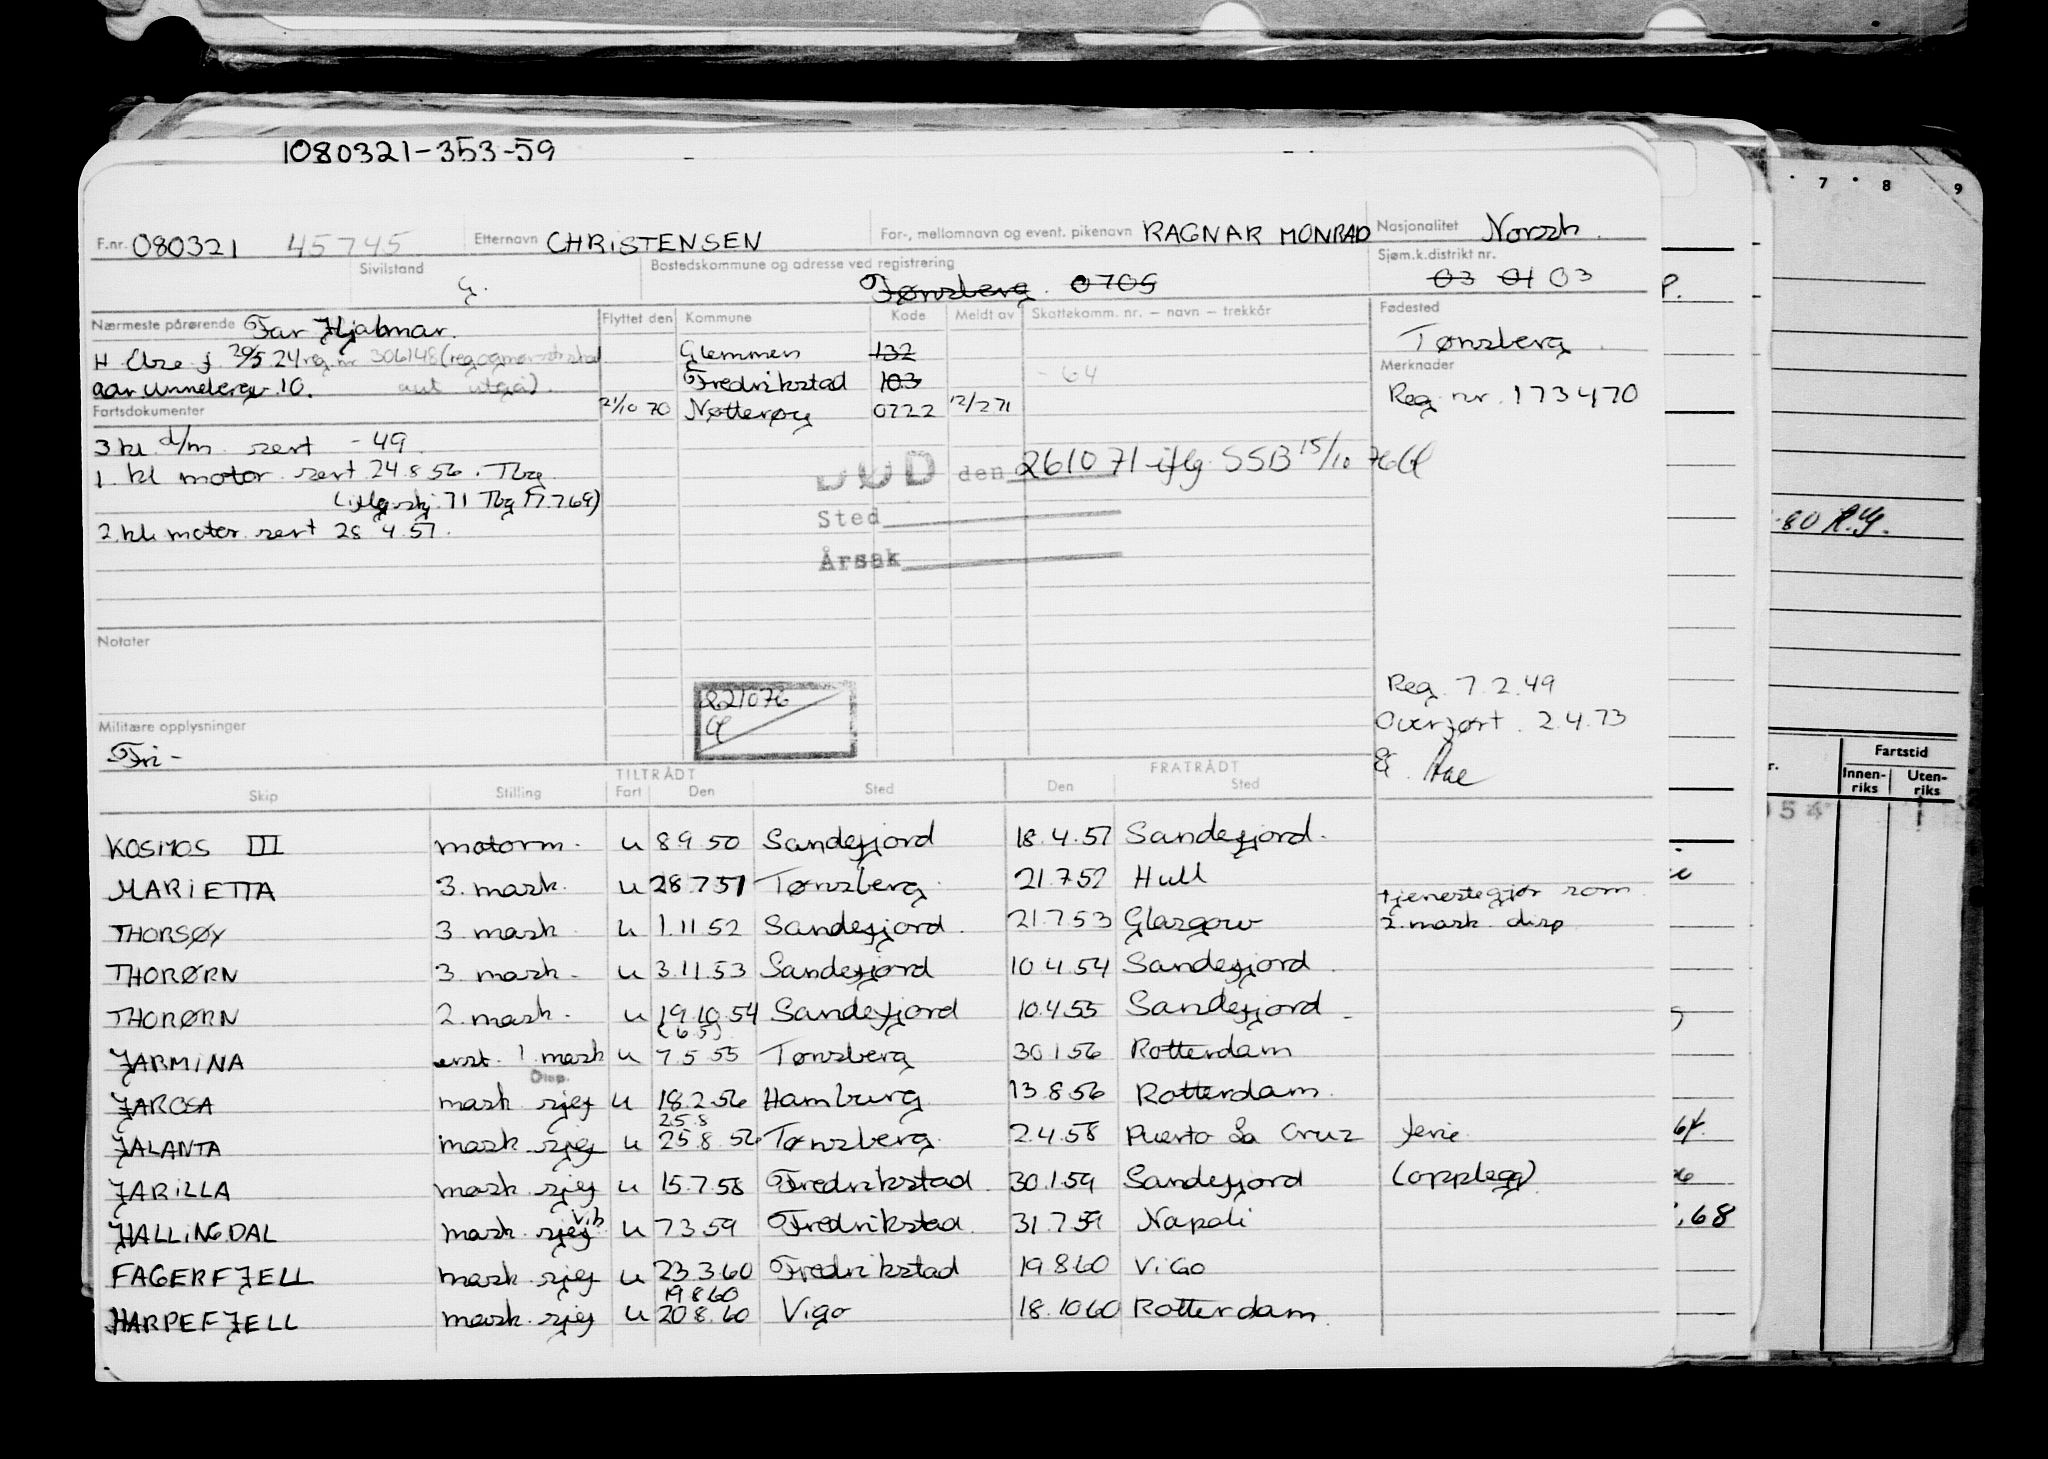 1080321-353-59
7 8 9
F.nr. 080321 45745 Etternavn CHRISTENSEN For-, mellomnavn og event. pikenavn RAGNAR MONRAD Nasjonalitet Norsk.
Sivilstand G. Bostedskommune og adresse ved registrering Tønsberg. 0705 Sjøm.k.distrikt nr. 03 01 03
Nærmeste pårørende Far Hjalmar. Flyttet den Kommune Kode Meldt av Skattekomm. nr. — navn — trekkår Fødested
H Else f 20/5 24 reg. nr 306148 Glemmen 132 Tønsberg.
aar Unneberg v. 10. aut utgå). Fredrikstad 103 -64 Merknader
Fartsdokumenter 21/10 70 Nøtterøy 0722 12/2 71 Reg nr. 173470
3 kl d/m. sert -49.
1. kl motor. sert 24.8.56. Tbg DØD den 261071 iflg. SSB 15/10 76
(iflg. skj. 71 Tbg 17.7.69) Sted
2. kl. motor. sert 28 4.57. Årsak
80 R.G.
Notater
221076
Reg. 7.2.49
Militære opplysninger Overført. 2.4.73
Fri -
TILTRÅDT FRATRÅDT
Skip Stilling Fart Den Sted Den Sted
Fartstid
Innen-riks Uten-riks
54
KOSMOS III motorm. u 8 9 50 Sandefjord 18.4.51 Sandefjord.
MARIETTA 3. mask. u 28.7 51 Tønsberg. 21.7.52 Hull
tjenestegjør som
THORSØY 3. mask u 1.11 52 Sandefjord. 21.7.53 Glasgow 2. mask. disp
THORØRN 3. mask. u 3.11.53 Sandefjord 10 4.54 Sandefjord.
THORØRN 2. mask. u 19.10.54 Sandefjord 10.4.55 Sandefjord
(6.5)
JARMINA erst. 1. mask u 7.5 55 Tønsberg 30.1.56 Rotterdam
Disp.
JAROSA mask. sjef u 18.2.56 Hamburg 13.8.56 Rotterdam.
25.8
JALANTA mask. sjef u 25.8.56 Tønsberg. 2.4.58 Puerto La Cruz ferie
JARILLA mask. sjef u 15.7.58 Fredrikstad 30.1.59 Sandefjord (opplegg)
HALLINGDAL mask. sjef vik u 7 3 59 Fredrikstad. 31.7.59 Napoli
68
FAGERFJELL mask. sjef u 23.3.60 Fredrikstad 19 8 60 ViGo
19 8 60
HARPEFJELL mask. sjef u 20 8.60 Vigo 18.10 60 Rotterdam.